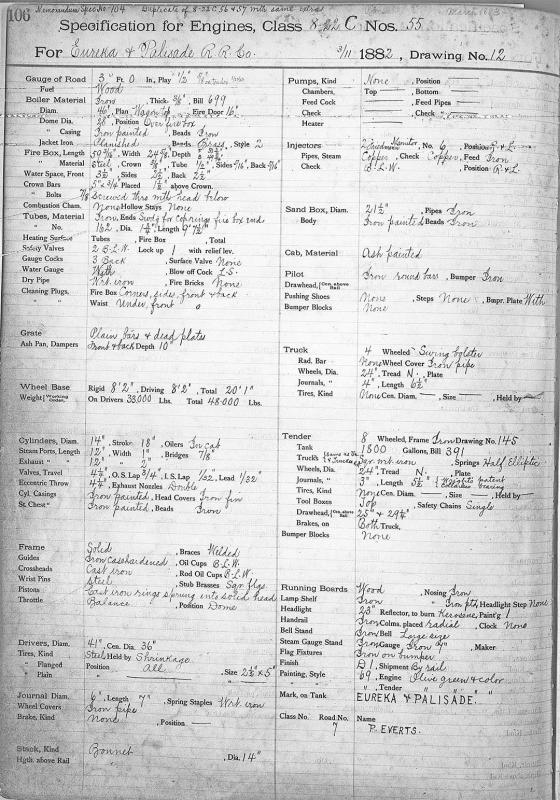 106
Memorandum Spec No 704 Duplicate of 8-22 C 56 & 57 with same extras
Specification for Engines, Class 8 22 C Nos. 55
For Eureka & Palisade R.R. Co. 3/11 1882, Drawing No. 12
Gauge of Road 3" Ft. 0 In., Play 1/2
Fuel Wood
Boiler Material Iron, Thick. 3/8" Bill 699
Diam. 46", Plan Wagon top Fire Door 16"
Dome Dia. Position Over fire box
" Casing Iron painted, Beads Iron
Jacket Iron Planished Bands Brass, Style 2
Fire Box, Length Width Depth
" Material Steel, Crown 3/8", Tube 1/2" Sides 5/16", Back 5/16"
Water Space, Front 3 1/2" Sides 2 1/2" Back 2 1/2"
Crown Bars 5" x 3/4" Placed 1 1/2" above Crown.
" Bolts 7/8 Screwed thro with head below
Combustion Cham. None Hollow Stays None
Tubes, Material Iron, Ends Swdg for cop rings fire box end
" No. Dia. Length
Heating Surface Tubes , Fire Box , Total
Safety Valves 2 S.L.W. Lock up 1 with relief lev.
Gauge Cocks 3 Back , Surface Valve None
Water Gauge With , Blow off Cock L.S.
Dry Pipe Wrt. iron , Fire Bricks None
Cleaning Plugs, Fire Box Corners, sides, front & back
Waist Under, front
Grate Plain bars & dead plates
Ash Pan, Dampers Front & back Depth 10"
Wheel Base Rigid 8' 2", Driving 8' 2", Total 20' 1"
Weight (Working Order.) On Drivers 33,000 Lbs. Total 48,000 Lbs.
Cylinders, Diam. 14", Stroke 18", Oilers In cab
Steam Ports, Length 12", Width 1" Bridges 7/8"
Exhaust " " 12" " 2"
Valves, Travel 4 1/2", O. S. Lap 3/4", I. S. Lap 1/32, Lead 1/32"
Eccentric Throw 4 1/2", Exhaust Nozzles Double
Cyl. Casings Iron painted, Head Covers Iron fin
St. Chest " Iron painted, Beads Iron
Frame Solid , Braces Welded
Guides Iron casehardened, Oil Cups B.L.W.
Crossheads Cast iron , Rod Oil Cups B.L.W.
Wrist Pins Steel , Stub Brasses Sqr. flgs
Pistons Cast iron rings sprung into solid head
Throttle Balance , Position Dome
Drivers, Diam. 41", Cen. Dia. 36"
Tires, Kind Steel, Held by Shrinkage
" Flanged Position All , Size 2 1/2" x 5"
" Plain
Journal Diam. 6", Length 7" Spring Staples Wrt. iron
Wheel Covers Iron pipe
Brake, Kind None , Position —
Stack, Kind Bonnet , Dia. 14"
Hgth. above Rail
Pumps, Kind None , Position
Chambers, Top — , Bottom
Feed Cock — , Feed Pipes —
Check — , Check
Heater
Injectors 2 Friedman Monitor, No. 6, Position R. & L.
Pipes, Steam Copper, Check Copper, Feed Iron
Check B.L.W. , Position R. & L.
Sand Box, Diam. 21 1/2", Pipes Iron
Body Iron painted Beads Iron
Cab, Material Ash painted
Pilot Iron round bars, Bumper Iron
Drawhead, (Cen. above Rail
Pushing Shoes None , Steps None , Bmpr. Plate With
Bumper Blocks None
Truck 4 Wheeled Swing bolster
Rad. Bar None Wheel Cover Iron pipe
Wheels, Dia. 24", Tread N., Plate
Journals, " 4", Length 6 1/2"
Tires, Kind None Cen. Diam. — , Size — , Held by
Tender 8 Wheeled, Frame Iron Drawing No. 145
Tank 1800 Gallons, Bill 391
Trucks Sqr. wrt. iron , Springs Half Elliptic
Wheels, Dia. 24", Tread N. , Plate
Journals, " 3", Length 5 1/2" Wrights patent bearing
Tires, Kind None Cen. Diam. — , Size — , Held by —
Tool Boxes Top , Safety Chains Single
Drawhead, (Cen. above Rail 25" & 29 3/4"
Brakes, on Both Truck,
Bumper Blocks None
Running Boards Wood , Nosing Iron
Lamp Shelf Iron , Iron ptd, Headlight Step None
Headlight 23" Reflector, to burn Kerosene, Paint'g 1
Handrail Iron Colms. placed radial , Clock None
Bell Stand Iron Bell Large size
Steam Gauge Stand Iron Gauge Iron 7" , Maker
Flag Fixtures Iron on bumper
Finish D 1, Shipment By rail
Painting, Style 69, Engine Olive green & color
" " , Tender " " " "
Mark, on Tank EUREKA & PALISADE.
Class No. Road No. Name
7 P. EVERTS.